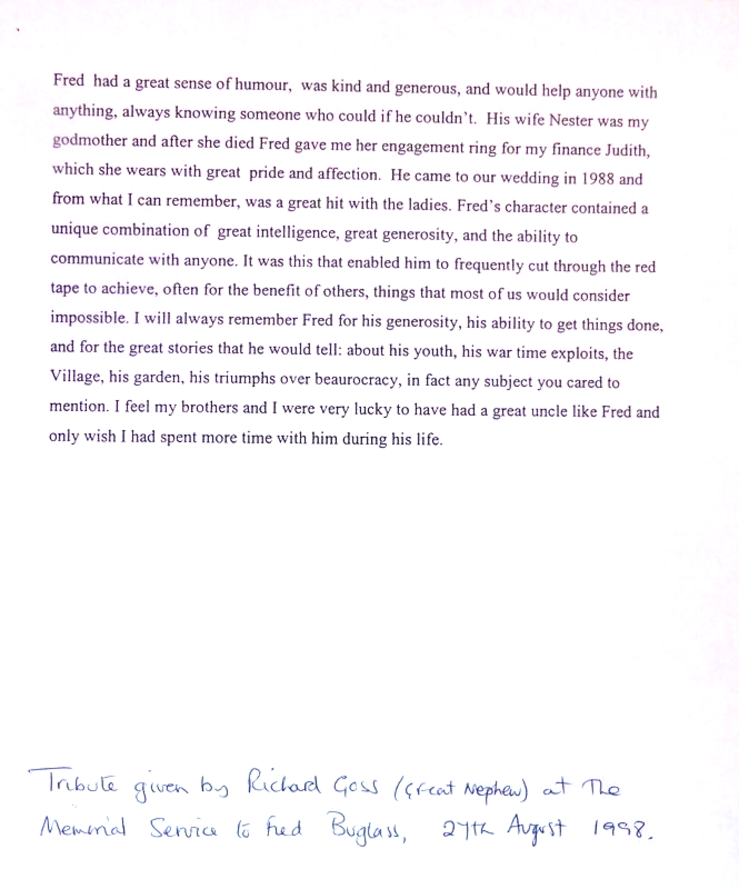 Fred had a great sense of humour, was kind and generous, and would help anyone with
anything, always knowing someone who could if he couldn't. His wife Nester was my
godmother and after she died Fred gave me her engagement ring for my finance Judith,
which she wears with great pride and affection. He came to our wedding in 1988 and
from what I can remember, was a great hit with the ladies. Fred's character contained a
unique combination of great intelligence, great generosity, and the ability to
communicate with anyone. It was this that enabled him to frequently cut through the red
tape to achieve, often for the benefit of others, things that most of us would consider
impossible. I will always remember Fred for his generosity, his ability to get things done,
and for the great stories that he would tell: about his youth, his war time exploits, the
Village, his garden, his triumphs over beaurocracy, in fact any subject you cared to
mention. I feel my brothers and I were very lucky to have had a great uncle like Fred and
only wish I had spent more time with him during his life.
Tribute given by Richard Goss (Great Nephew) at The
Memorial Service to Fred Buglass, 27th August 1998.